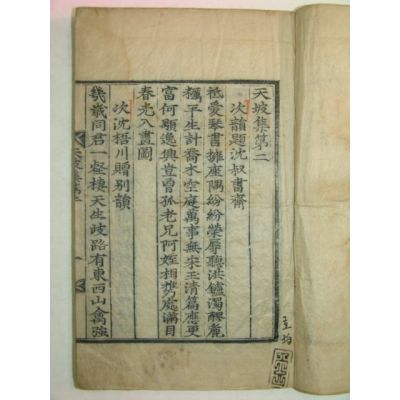 天坡集第二
次韻題沈叔書齋
秪愛琴書擁座隅紛紛榮辱聽洪鑪濁醪麄
糲平生計喬木空庭萬事無宋玉清篇應更
富何顒逸興豈曾孤老兄阿姪相携處滿目
春光入畫圖
次沈梧川贈別韻
幾歲同君一壑棲天生歧路有東西山禽強